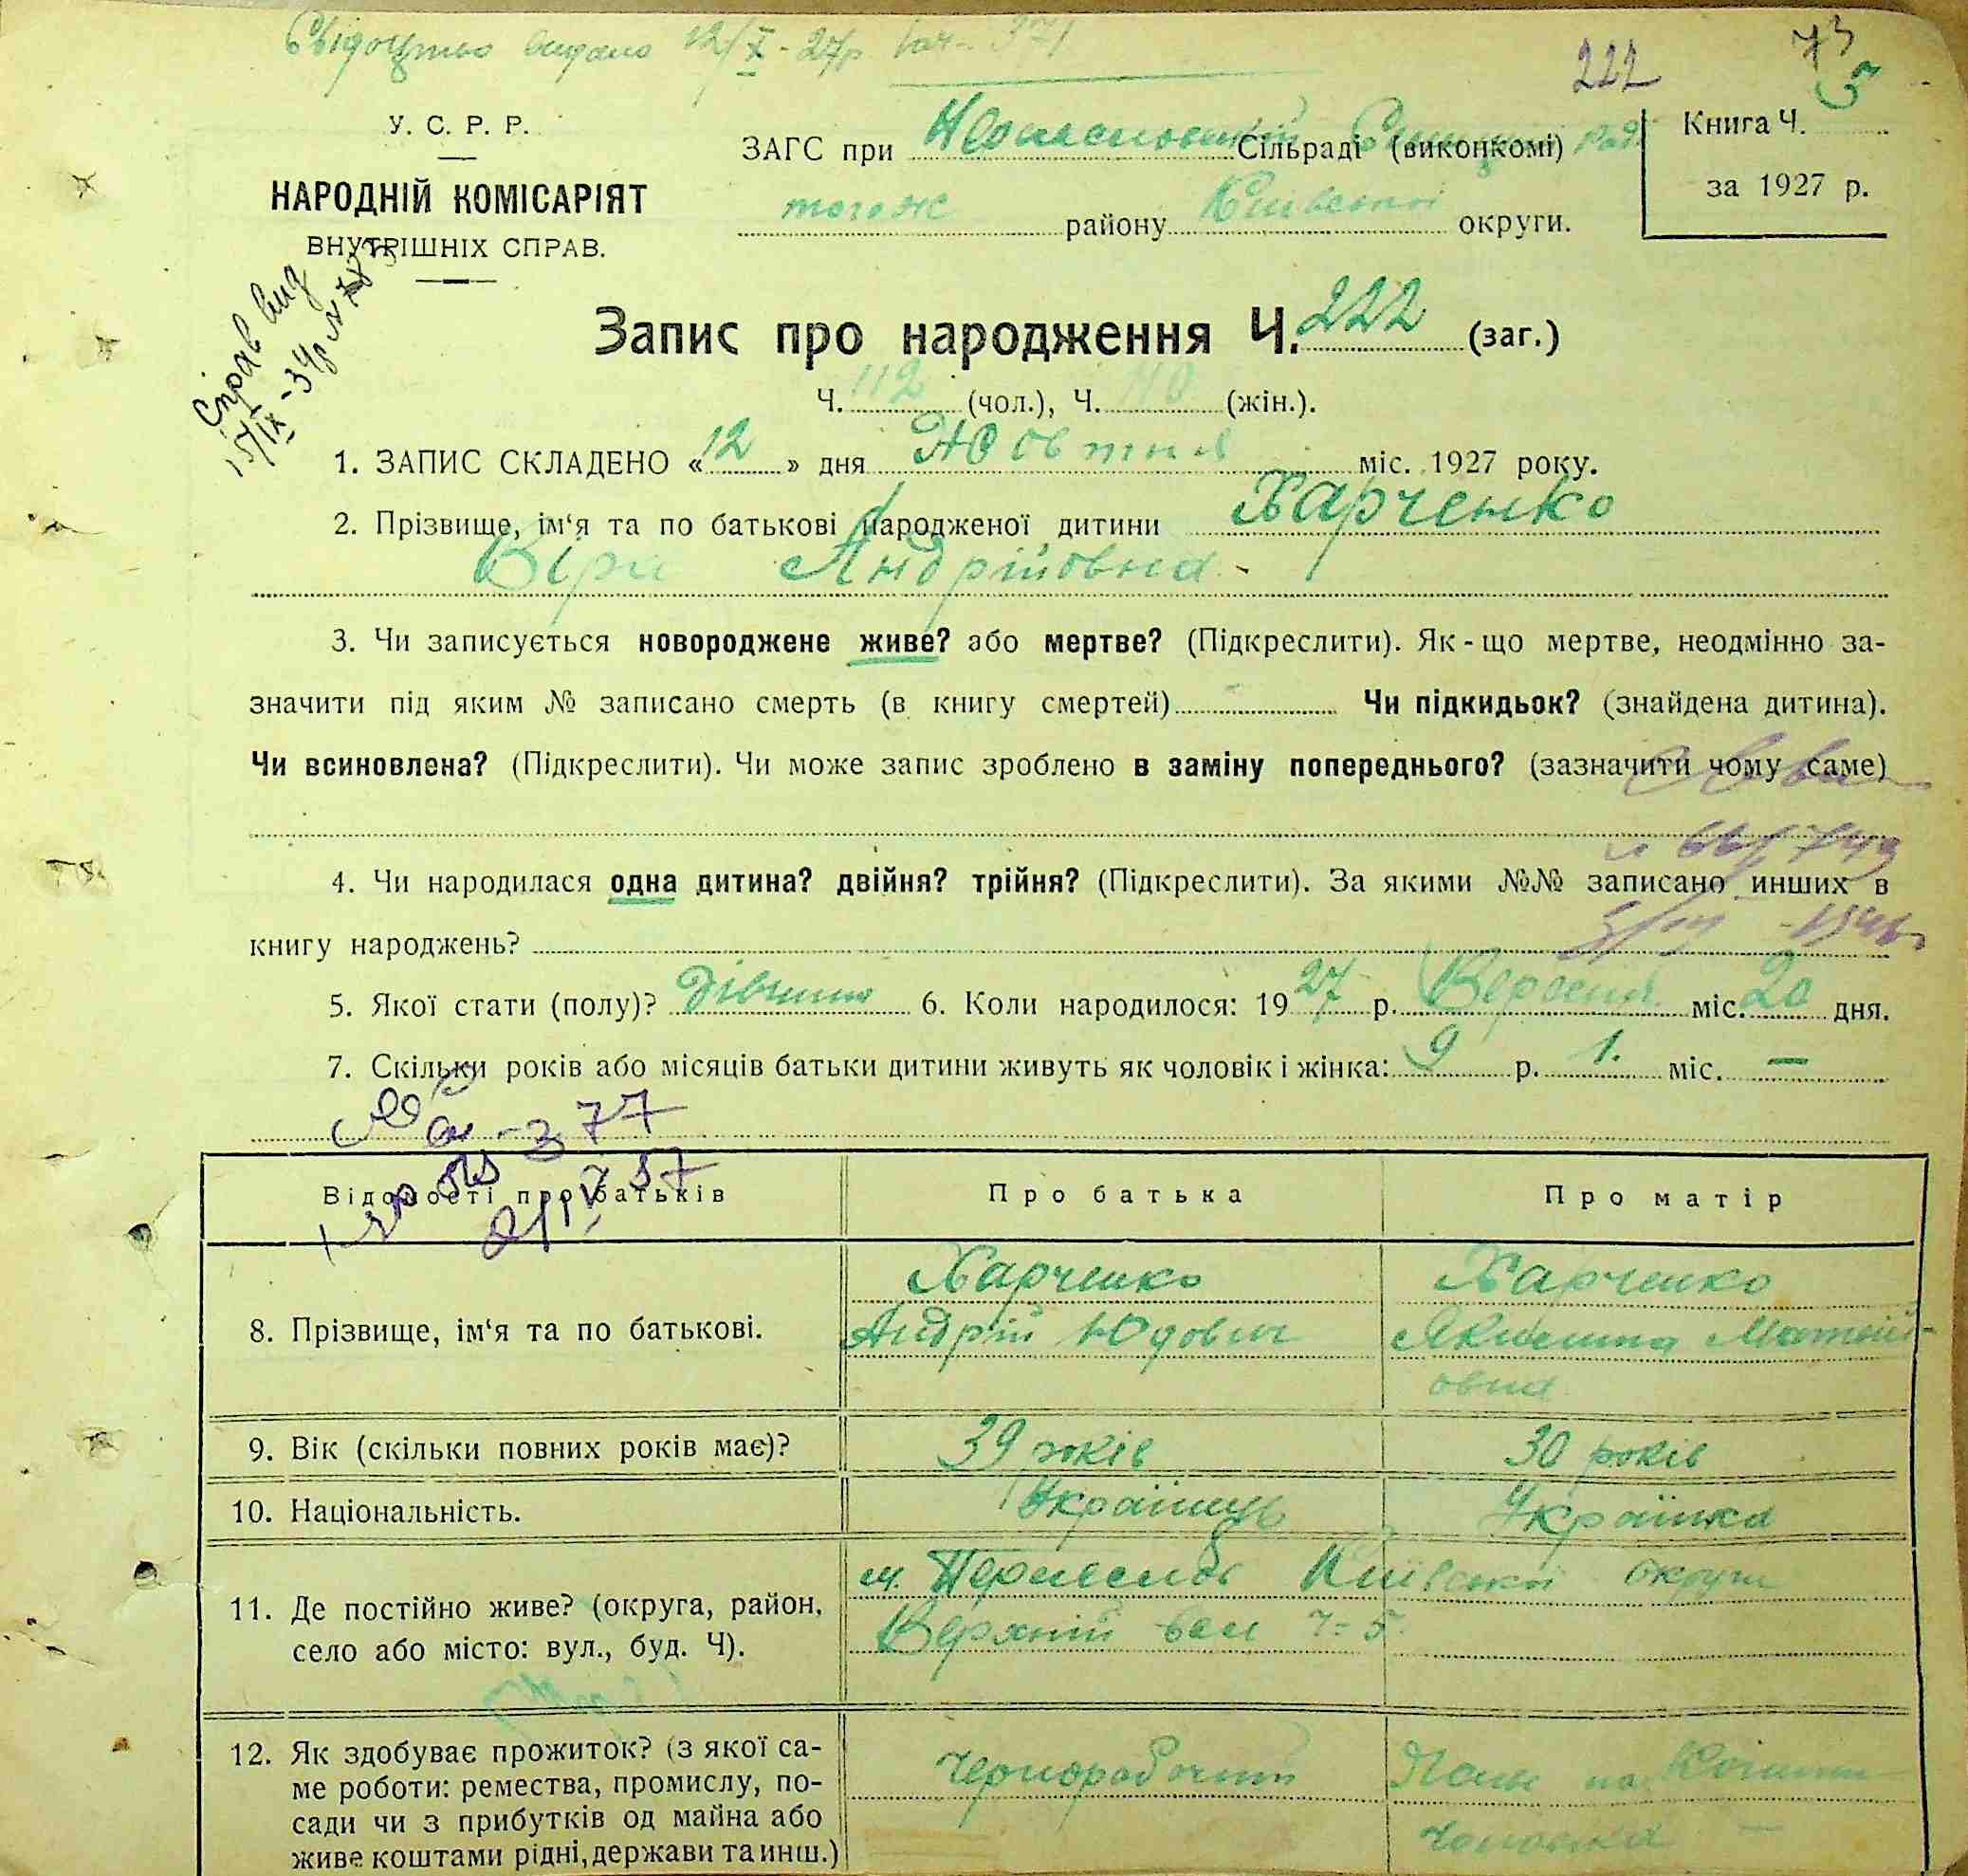 Свідоцтво видано 12/X - 27р. 371
222 73
У. С. Р. Р.
НАРОДНІЙ КОМІСАРІЯТ
ВНУТРІШНІХ СПРАВ.
ЗАГС при Сільраді (виконкомі)
тогож району Київської округи.
Книга Ч. 5
за 1927 р.
Справ вид
15/IX - 34р
Запис про народження Ч. 222 (заг.)
Ч. 112 (чол.), Ч. 110 (жін.).
1. ЗАПИС СКЛАДЕНО «12» дня Жовтня міс. 1927 року.
2. Прізвище, ім'я та по батькові народженої дитини Харченко
Віра Андрійовна
3. Чи записується новороджене живе? або мертве? (Підкреслити). Як-що мертве, неодмінно за-
значити під яким № записано смерть (в книгу смертей) Чи підкидьок? (знайдена дитина).
Чи всиновлена? (Підкреслити). Чи може запис зроблено в заміну попереднього? (зазначити чому саме)
4. Чи народилася одна дитина? двійня? трійня? (Підкреслити). За якими №№ записано инших в
книгу народжень?
5. Якої стати (полу)? Дівчина 6. Коли народилося: 1927 р. Вересня міс. 20 дня.
7. Скільки років або місяців батьки дитини живуть як чоловік і жінка: 9 р. 1. міс. —
377
Відомості про батьків Про батька Про матір
8. Прізвище, ім'я та по батькові. Харченко Андрій Юдович Харченко Матвій-
овна
9. Вік (скільки повних років має)? 39 років 30 років
10. Національність. Українець Українка
11. Де постійно живе? (округа, район,
село або місто: вул., буд. Ч).
м. Переяслав Київської округи
Верхній вал ч= 5.
12. Як здобуває прожиток? (з якої са-
ме роботи: ремества, промислу, по-
сади чи з прибутків од майна або
живе коштами рідні, держави та инш.)
Чернорабочий
на кошти
чоловіка